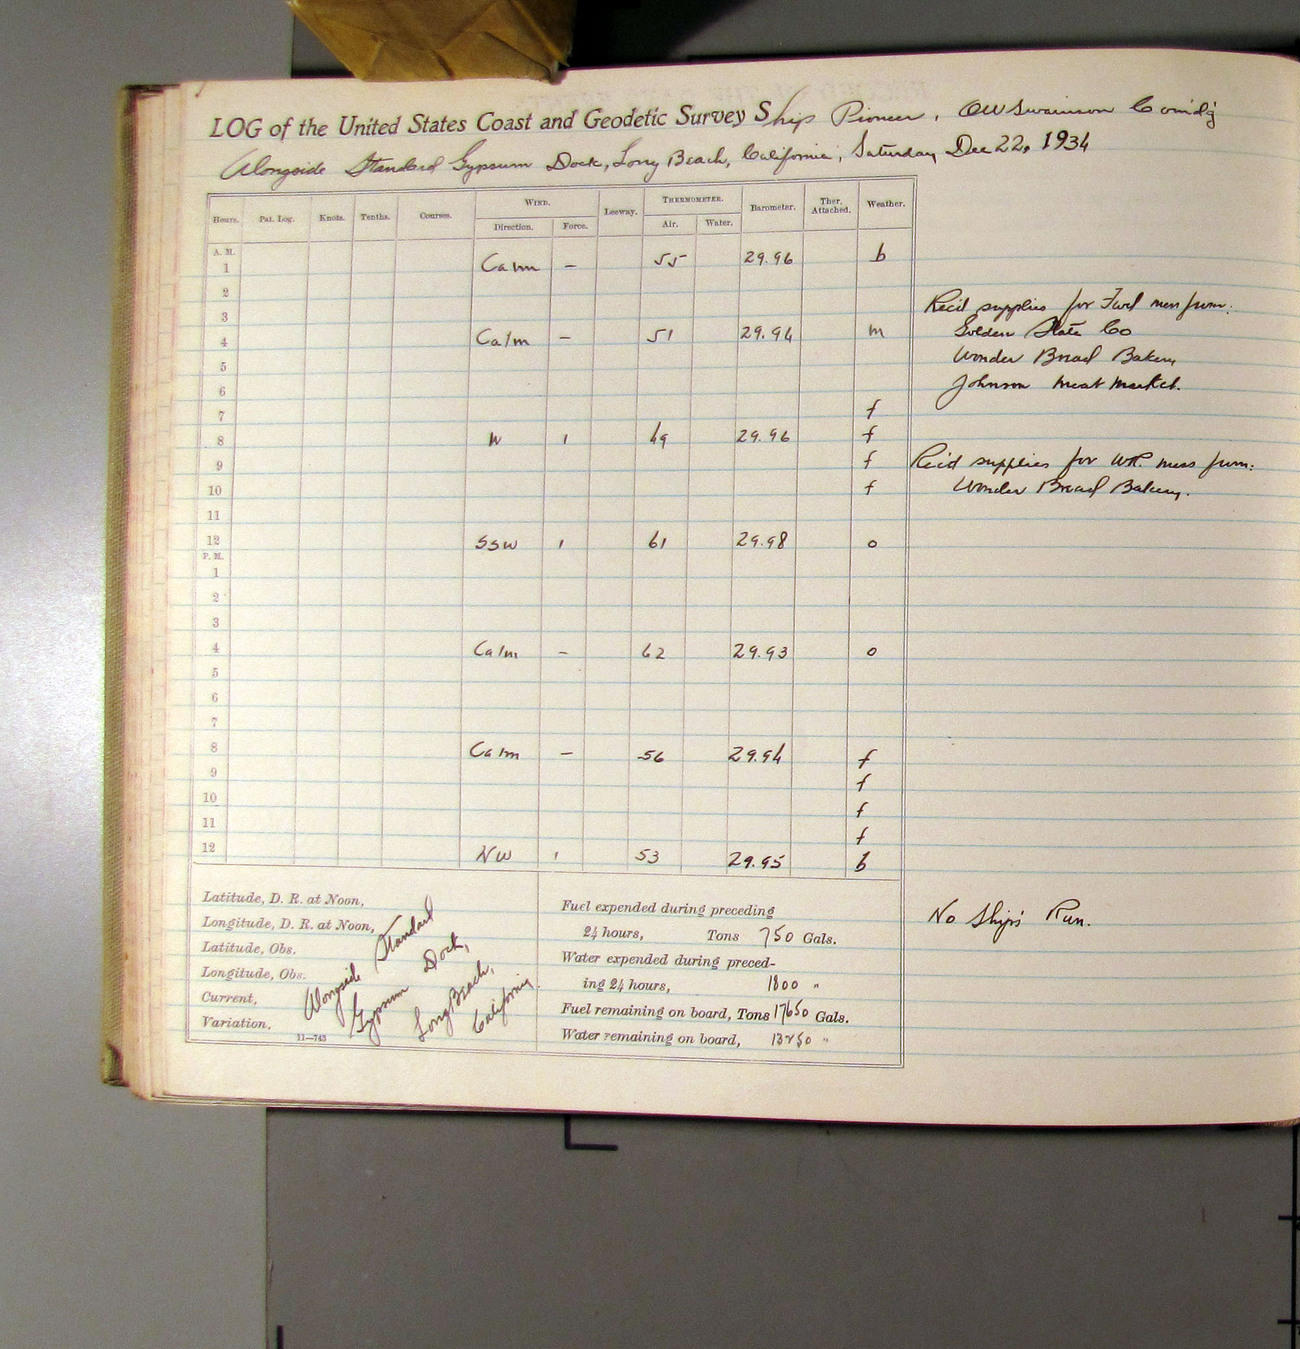 LOG of the United States Coast and Geodetic Survey Ship Pioneer, OW Swainson Comd'g
Alongside Standard Gypsum Dock, Long Beach, California, Saturday Dec 22, 1934
Hours. Pat. Log. Knots. Tenths. Courses. WIND. Leeway. THERMOMETER. Barometer. Ther. Attached. Weather.
Direction. Force. Air. Water.
A. M.
1 Calm – 55 29.96 b
2
3 Rec'd supplies for Fwd mess from:
4 Calm – 51 29.94 m Golden State Co
5 Wonder Bread Bakery
6 Johnson Meat Market.
7 f
8 W 1 49 29.96 f
9 f Rec'd supplies for WR. mess from:
10 f Wonder Bread Bakery.
11
12 SSW 1 61 29.98 o
P. M.
1
2
3
4 Calm – 62 29.93 o
5
6
7
8 Calm – 56 29.94 f
9 f
10 f
11 f
12 NW 1 53 29.95 b
Latitude, D. R. at Noon,
Longitude, D. R. at Noon,
Latitude, Obs.
Longitude, Obs.
Current,
Variation,
Alongside Standard
Gypsum Dock,
Long Beach,
California.
11—743
Fuel expended during preceding
24 hours, Tons 750 Gals.
Water expended during preced-
ing 24 hours, 1800 "
Fuel remaining on board, Tons 17650 Gals.
Water remaining on board, 13250 "
No Ship's Run.